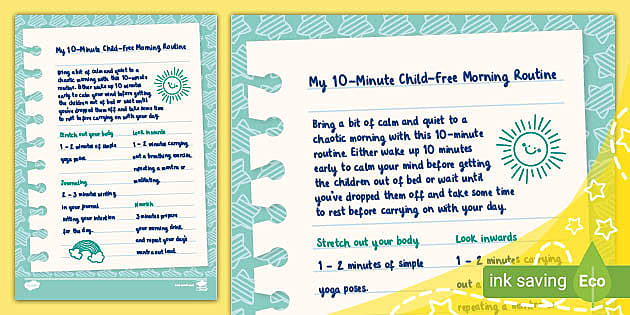 My 10-Minute Child-Free Morning Routine
Bring a bit of calm and quiet to a
chaotic morning with this 10-minute
routine. Either wake up 10 minutes
early to calm your mind before getting
the children out of bed or wait until
you've dropped them off and take some time
to rest before carrying on with your day.
Stretch out your body
1 - 2 minutes of simple
yoga poses.
Look inwards
1 - 2 minutes carrying
out a breathing exercise,
repeating a mantra or
meditating.
Journaling
2 - 3 minutes writing
in your journal
setting your intention
for the day.
Nourish
3 minutes prepare
your morning drink
and repeat your day's
mantra out loud.
My 10-Minute Child-Free Morning Routine
Bring a bit of calm and quiet to a
chaotic morning with this 10-minute
routine. Either wake up 10 minutes
early to calm your mind before getting
the children out of bed or wait until
you've dropped them off and take some time
to rest before carrying on with your day.
Stretch out your body
1 - 2 minutes of simple
yoga poses.
Look inwards
1 - 2 minutes carrying
out a
repeating a
ink saving
Eco